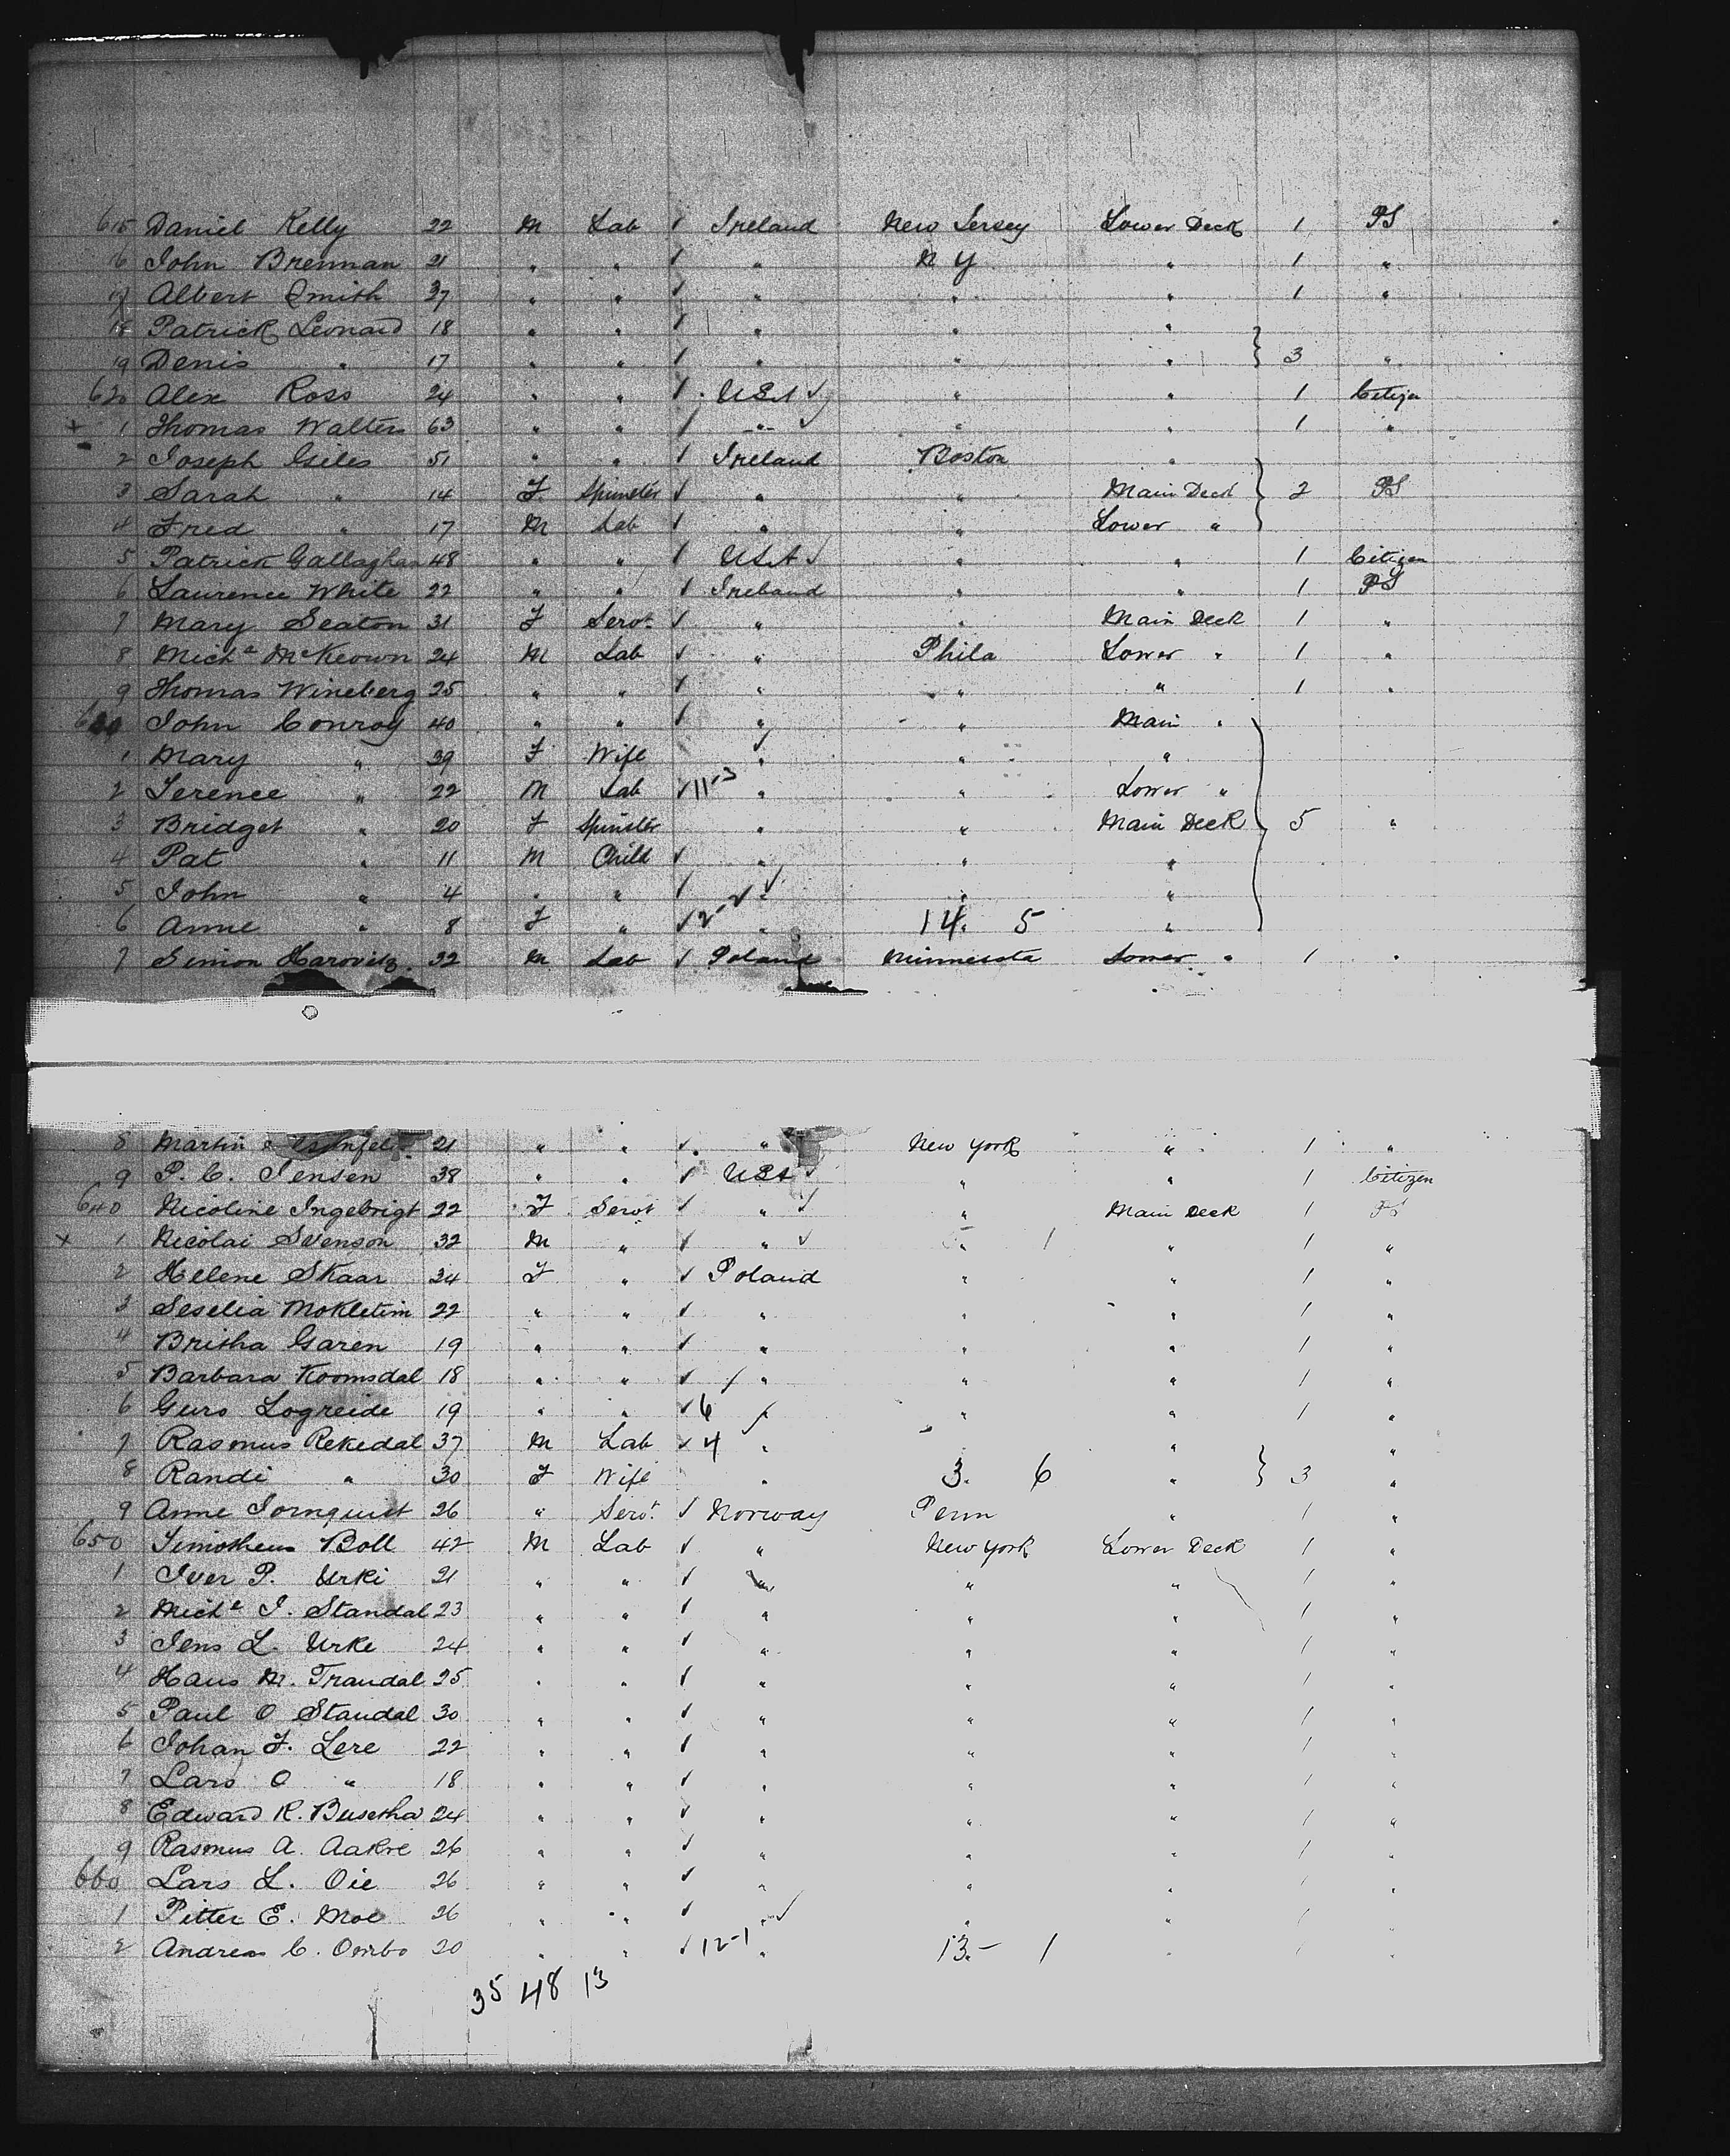 615 Daniel Kelly 22 M Lab Ireland New Jersey Lower Deck 1 PS
16 John Brennan 21 " " " N Y " 1 "
17 Albert Smith 37 " " " " " 1 "
18 Patrick Leonard 18 " " " " "
19 Denis " 17 " " " " " 3 "
620 Alex Ross 24 " " USA " " 1 Citizen
x 1 Thomas Walters 63 " " " " " 1 "
2 Joseph Giles 51 " " Ireland Boston "
3 Sarah " 14 F Spinster " " Main Deck 2 PS
4 Fred " 17 M Lab " " Lower "
5 Patrick Gallaghan 48 " " USA " " 1 Citizen
6 Laurence White 22 " " Ireland " " 1 PS
7 Mary Seaton 31 F Servt " " Main Deck 1 "
8 Michl McKeown 24 M Lab " Phila Lower " 1 "
9 Thomas Wineberg 25 " " " " " 1 "
John Conroy 40 " " " " Main "
1 Mary " 39 F Wife " " "
2 Terence " 22 M Lab 11-3 " " Lower "
3 Bridget " 20 F Spinster " " Main Deck 5 "
4 Pat " 11 M Child " " "
5 John " 4 " " " " "
6 Annie " 8 F " 2-2 " 14. 5 "
7 Simon Harovitz 32 M Lab Poland Minnesota Lower " 1 "
8 Martin 21 " " " New York " 1 "
9 P. C. Jensen 38 " " USA " " 1 Citizen
640 Nicoline Ingebrigt 22 F Servt " " Main Deck 1 PS
x 1 Nicolai Svenson 32 M " " " 1 " 1 "
2 Helene Skaar 34 F " Poland " " 1 "
3 Seselia Mokletim 22 " " " " " 1 "
4 Britha Garen 19 " " " " " 1 "
5 Barbara Koomsdal 18 " " " " " 1 "
6 Guro Logreide 19 " " 6 " " 1 "
7 Rasmus Rekedal 37 M Lab 4 " "  " "
8 Randi " 30 F Wife " 3. 6 " 3 "
9 Anne Tornquist 26 " Servt Norway Penn 1 "
650 Timotheus Boll 42 M Lab " New York Lower Deck 1 "
1 Iver P. Urki 21 " " " " " 1 "
2 Michl I. Standal 23 " " " " " 1 "
3 Jens L. Urke 24 " " " " " 1 "
4 Hans M. Trandal 25 " " " " " 1 "
5 Paul O Standal 30 " " " " " 1 "
6 Johan F. Lere 22 " " " " " 1 "
7 Lars O " 18 " " " " " 1 "
8 Edward R. Busetha 24 " " " " " 1 "
9 Rasmus A. Aakre 26 " " " " " 1 "
660 Lars L. Oie 26 " " " " " 1 "
1 Pitter E. Moe 26 " " " " " 1 "
2 Andreas C. Ombo 20 " " 12-1 " 13.- 1 " 1 "
35 48 13